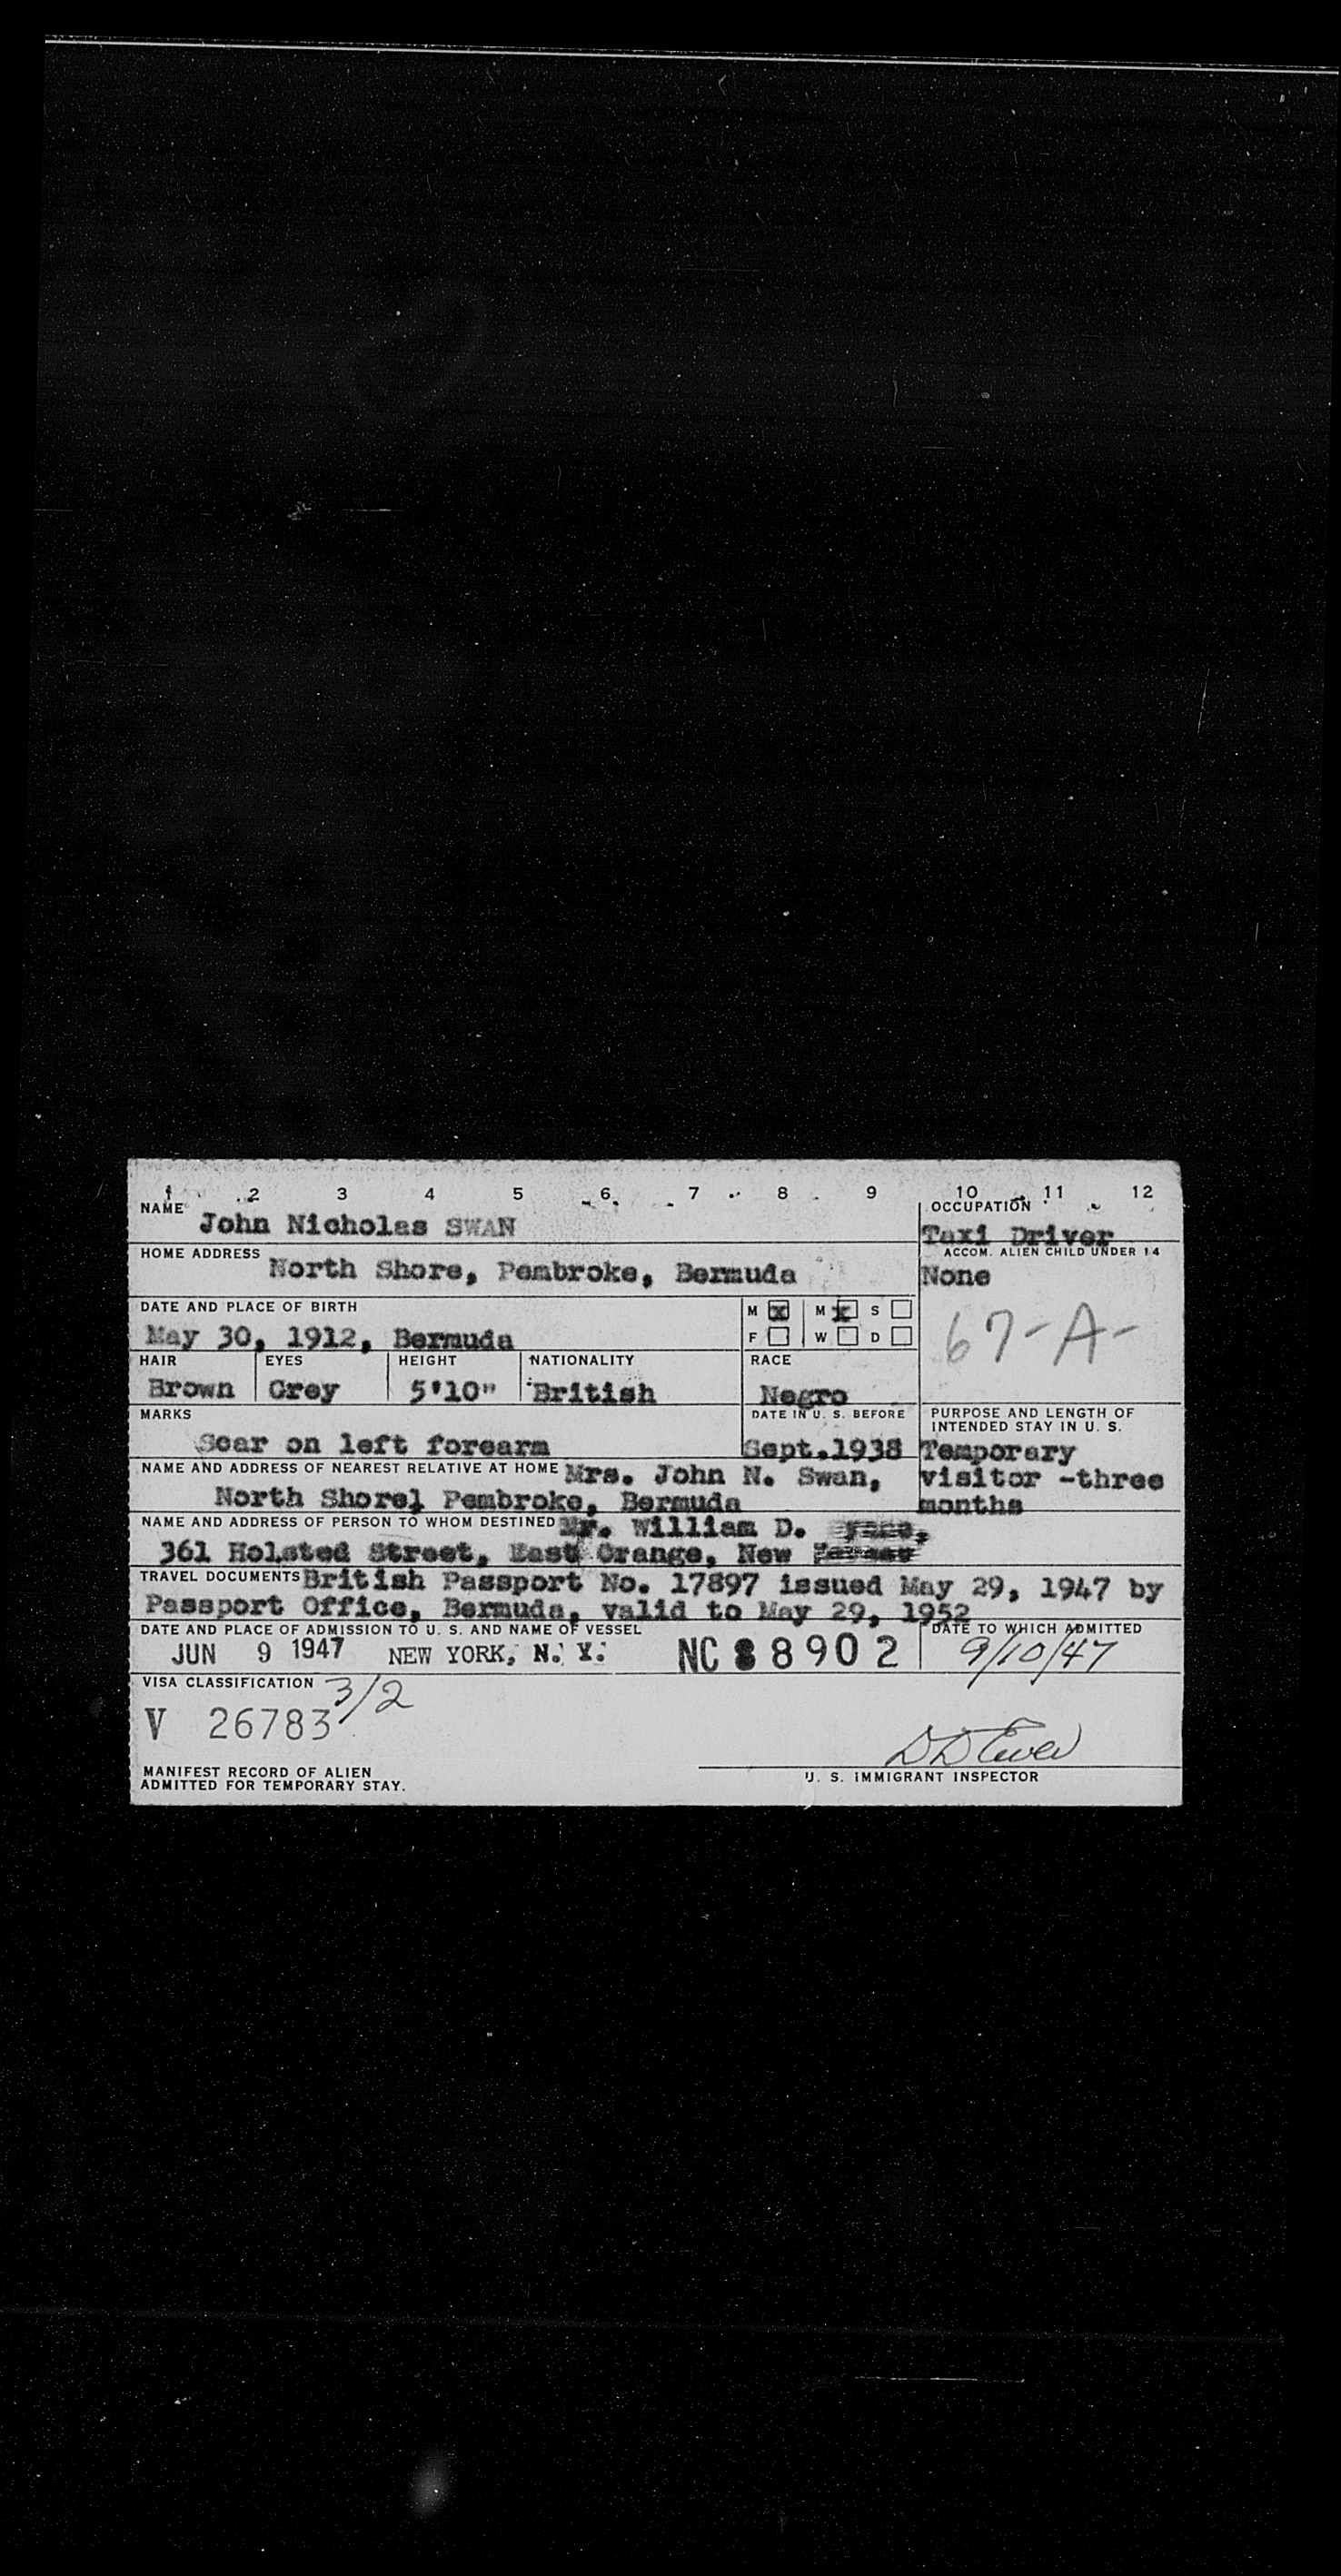 1 2 3 4 5 6 7 8 9 10 11 12
NAME John Nicholas SWAN
OCCUPATION
Taxi Driver
HOME ADDRESS North Shore, Pembroke, Bermuda
ACCOM. ALIEN CHILD UNDER 14
None
DATE AND PLACE OF BIRTH
May 30, 1912, Bermuda
M X M X S
F W D
67-A-
HAIR EYES HEIGHT NATIONALITY RACE
Brown Grey 5'10" British Negro
MARKS
Scar on left forearm
DATE IN U. S. BEFORE
Sept.1938
PURPOSE AND LENGTH OF
INTENDED STAY IN U. S.
Temporary
visitor -three
months
NAME AND ADDRESS OF NEAREST RELATIVE AT HOME Mrs. John N. Swan,
North Shore, Pembroke, Bermuda
NAME AND ADDRESS OF PERSON TO WHOM DESTINED Mr. William D.
361 Holsted Street, East Orange, New
TRAVEL DOCUMENTS British Passport No. 17897 issued May 29, 1947 by
Passport Office, Bermuda, valid to May 29, 1952
DATE AND PLACE OF ADMISSION TO U. S. AND NAME OF VESSEL
JUN 9 1947 NEW YORK, N. Y. NC 88902
DATE TO WHICH ADMITTED
9/10/47
VISA CLASSIFICATION 3/2
V 26783
MANIFEST RECORD OF ALIEN
ADMITTED FOR TEMPORARY STAY.
U. S. IMMIGRANT INSPECTOR